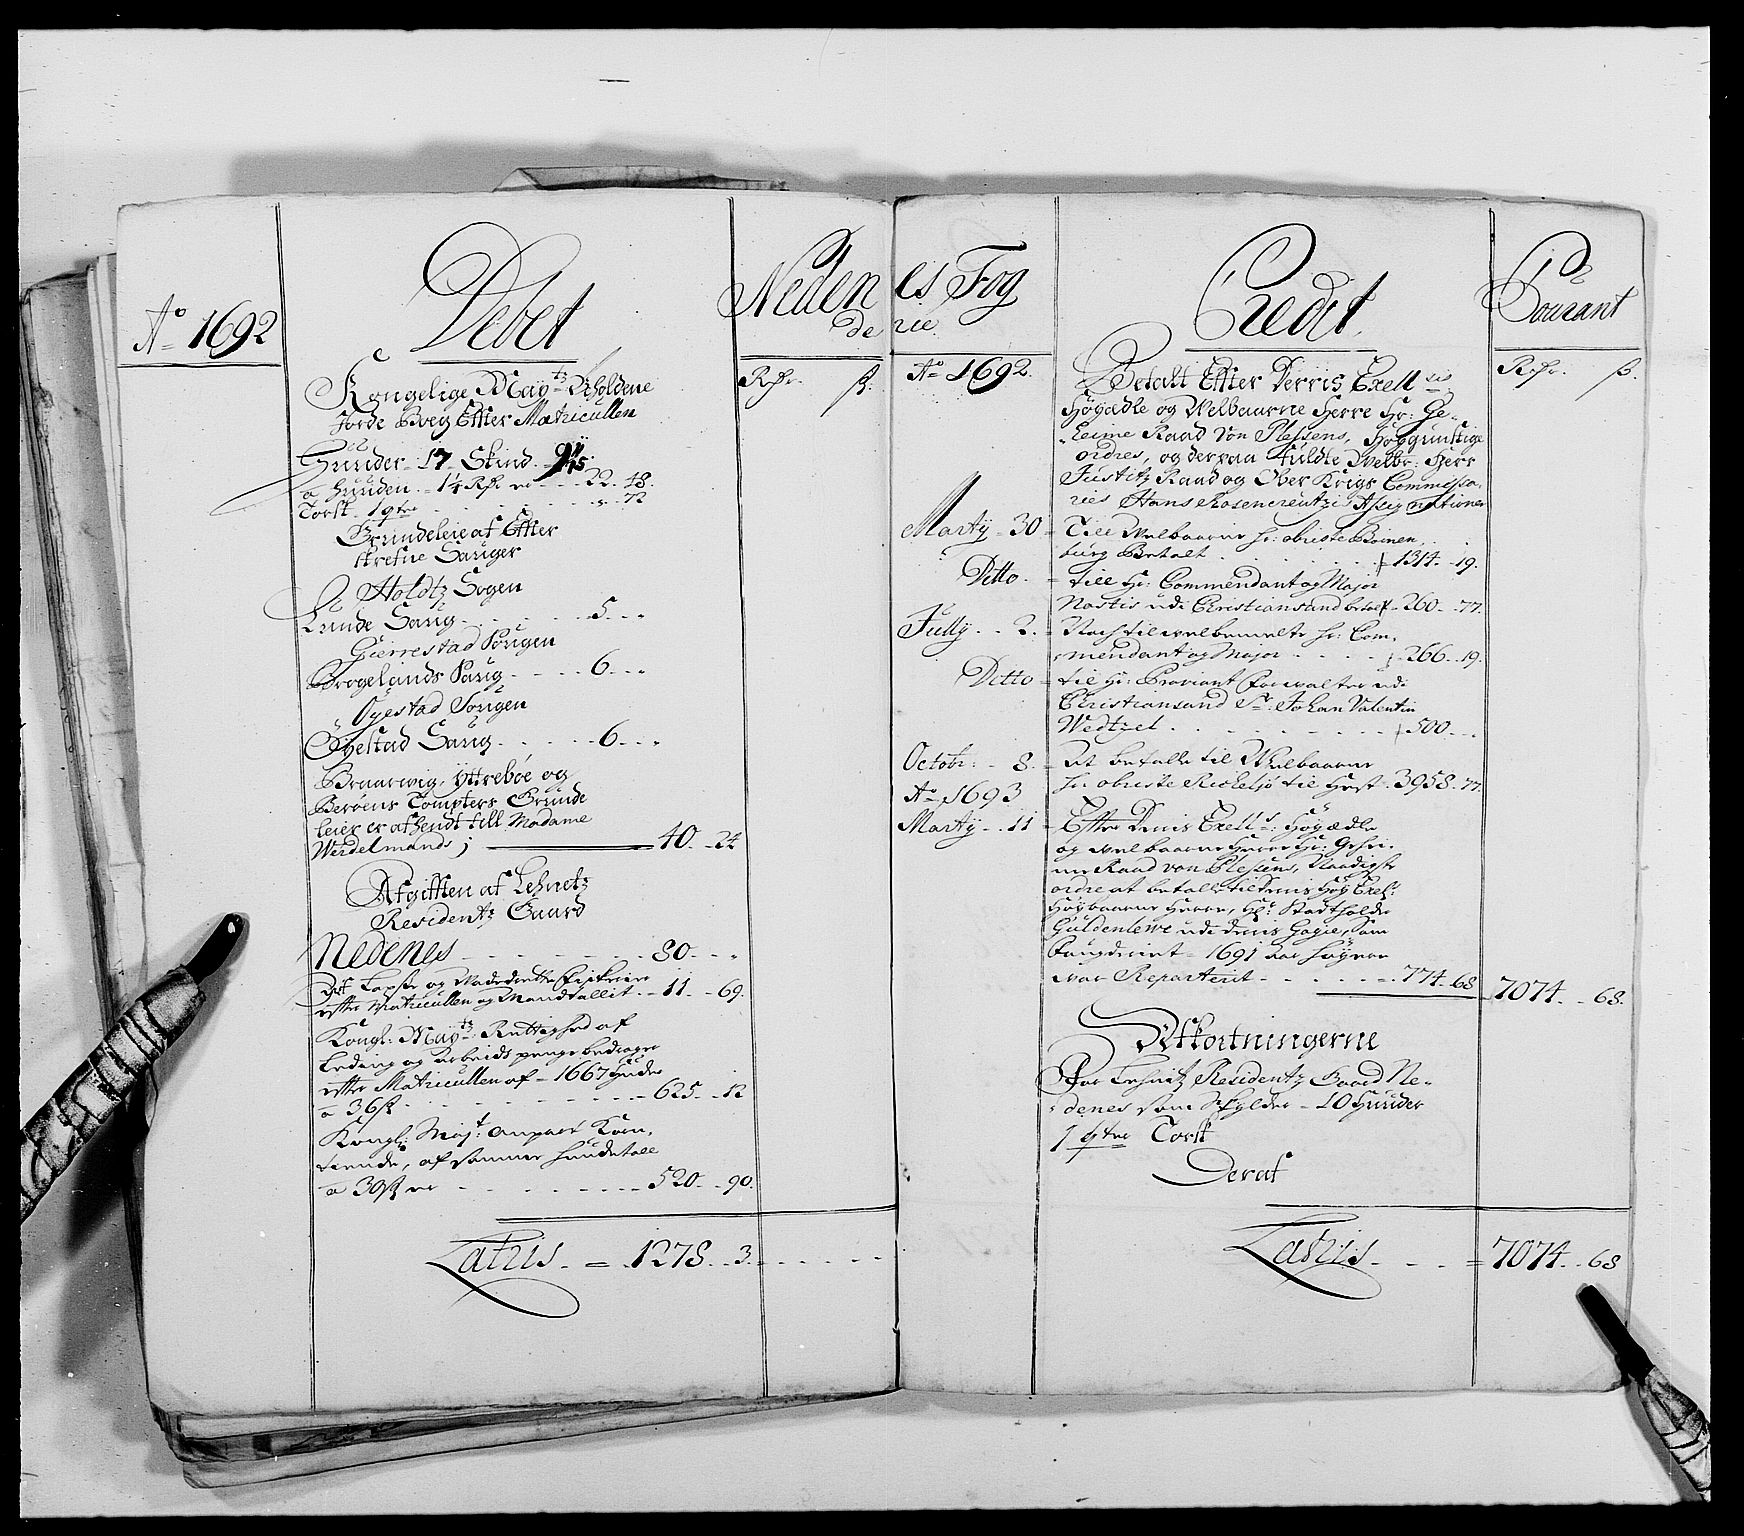 Ao 1692
Debet
Neden
de
Rdr. ß.
Kongelige Maytz Beholdene
Jorde Boeg Effter Matricullen
Huuder 17 Skind
a huuden 1¼ Rdr er 22. 48.
Torsk 1 qtr 72
Grundeleie af Effter
skrefne Sauger
Holdtz Sogen
Lunde Saug 5
Gierrestad Sougen
Brogelands Saug 6
Öyestad Sougen
Öyestad Saug 6
Braarwig, Yttrebøe og
Berøens Tompters Grunde
leier er afsendt till Madame
Werdelmands; 40 24
Afgifften af Lehnetz
Residentz Gaard
Nedenes 80
effter Matricullen og Mandtallit 11 69.
Kongl: Maytz Rettighed af
Leding og Arbeids penge bedrager
effter Matricullen af 1667 Huder
a 36 ß 625 12
Kongl: Mayt: anpart Korn
tiende, af samme huudetall
a 30 ß er 520 90.
Latris = 1278 3
es Fog
rie
Credit
Courant
Ao 1692.
Rdr. ß.
Betalt Effter Derris Exell
Høyædle og Welbaarne Herre Hr: Ge-
heime Raad Von Plessens, Høygunstige
ordres, og derpaa fuldte Welbr: Herr
Justitz Raad og Ober Krigs Commissa-
ries Hans Rosencreutzis Assignationer
Marty 30 Till Welbaarne hr: obriste Boinen
burg Betalt 1314 19.
Ditto till Hr: Commendant og Major
Nostis udi Christiansand betalt 260 77.
July 2. Noch til welbemelte hr: Com-
mendant og Major 266 19.
Ditto til Hr: Proviant Forwalter udi
Christiansand Sr: Johan Valentin
Wedtzel 500
Octobr: 8. At betalle til Welbaarne
hr obriste til Hest 3958 77
Ao 1693
Marty 11 Effter Deris Exells: Høyædle
og welbaarne Herre Hr: Gehei-
me Raad von Plessens, Naadigste
ordre at betalle til Deris Høy Exel:
Høybaarne Herre, Hr: Stadtholder
Guldenlewe udi deris Gagie, som
1691
war Reparterit 774 68 7074 68.
Afkortningerne
For Lehnitz Residentz Gaard Ne-
denes som Skylder 10 Huuder
1 qtr Torsk
Deraf
Latris = 7074 68